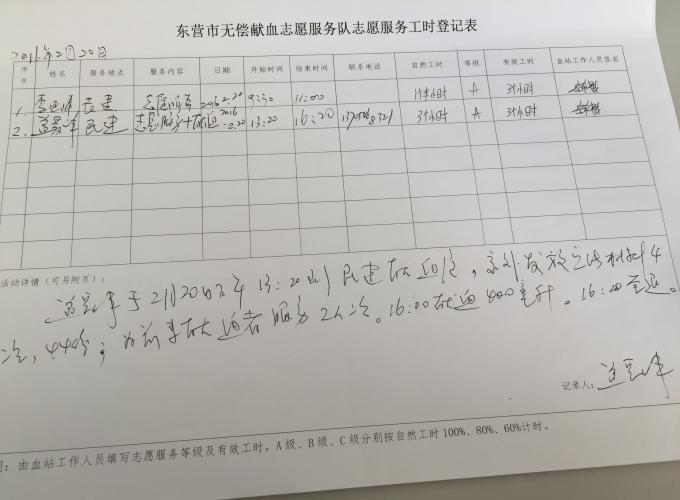 东营市无偿献血志愿服务队志愿服务工时登记表
2016年2月20日
序号 姓名 服务地点 服务内容 日期 开始时间 结束时间 联系电话 自然工时 等级 有效工时 血站工作人员签名
1. 民建 志愿服务 2016.2.20 9:30 11:00 小时 A 小时
2. 民建 志愿服务+献血 2016.2.20 13:20 16:20 3小时 A 3小时
活动详情(可另附页):
于2月20日下午13:20到民建献血屋,室外发放宣传材料4
次,44份;为前来献血者服务2人次。16:00献血400毫升。16:20至返。
记录人:
明:由血站工作人员填写志愿服务等级及有效工时。A级、B级、C级分别按自然工时100%、80%、60%计时。